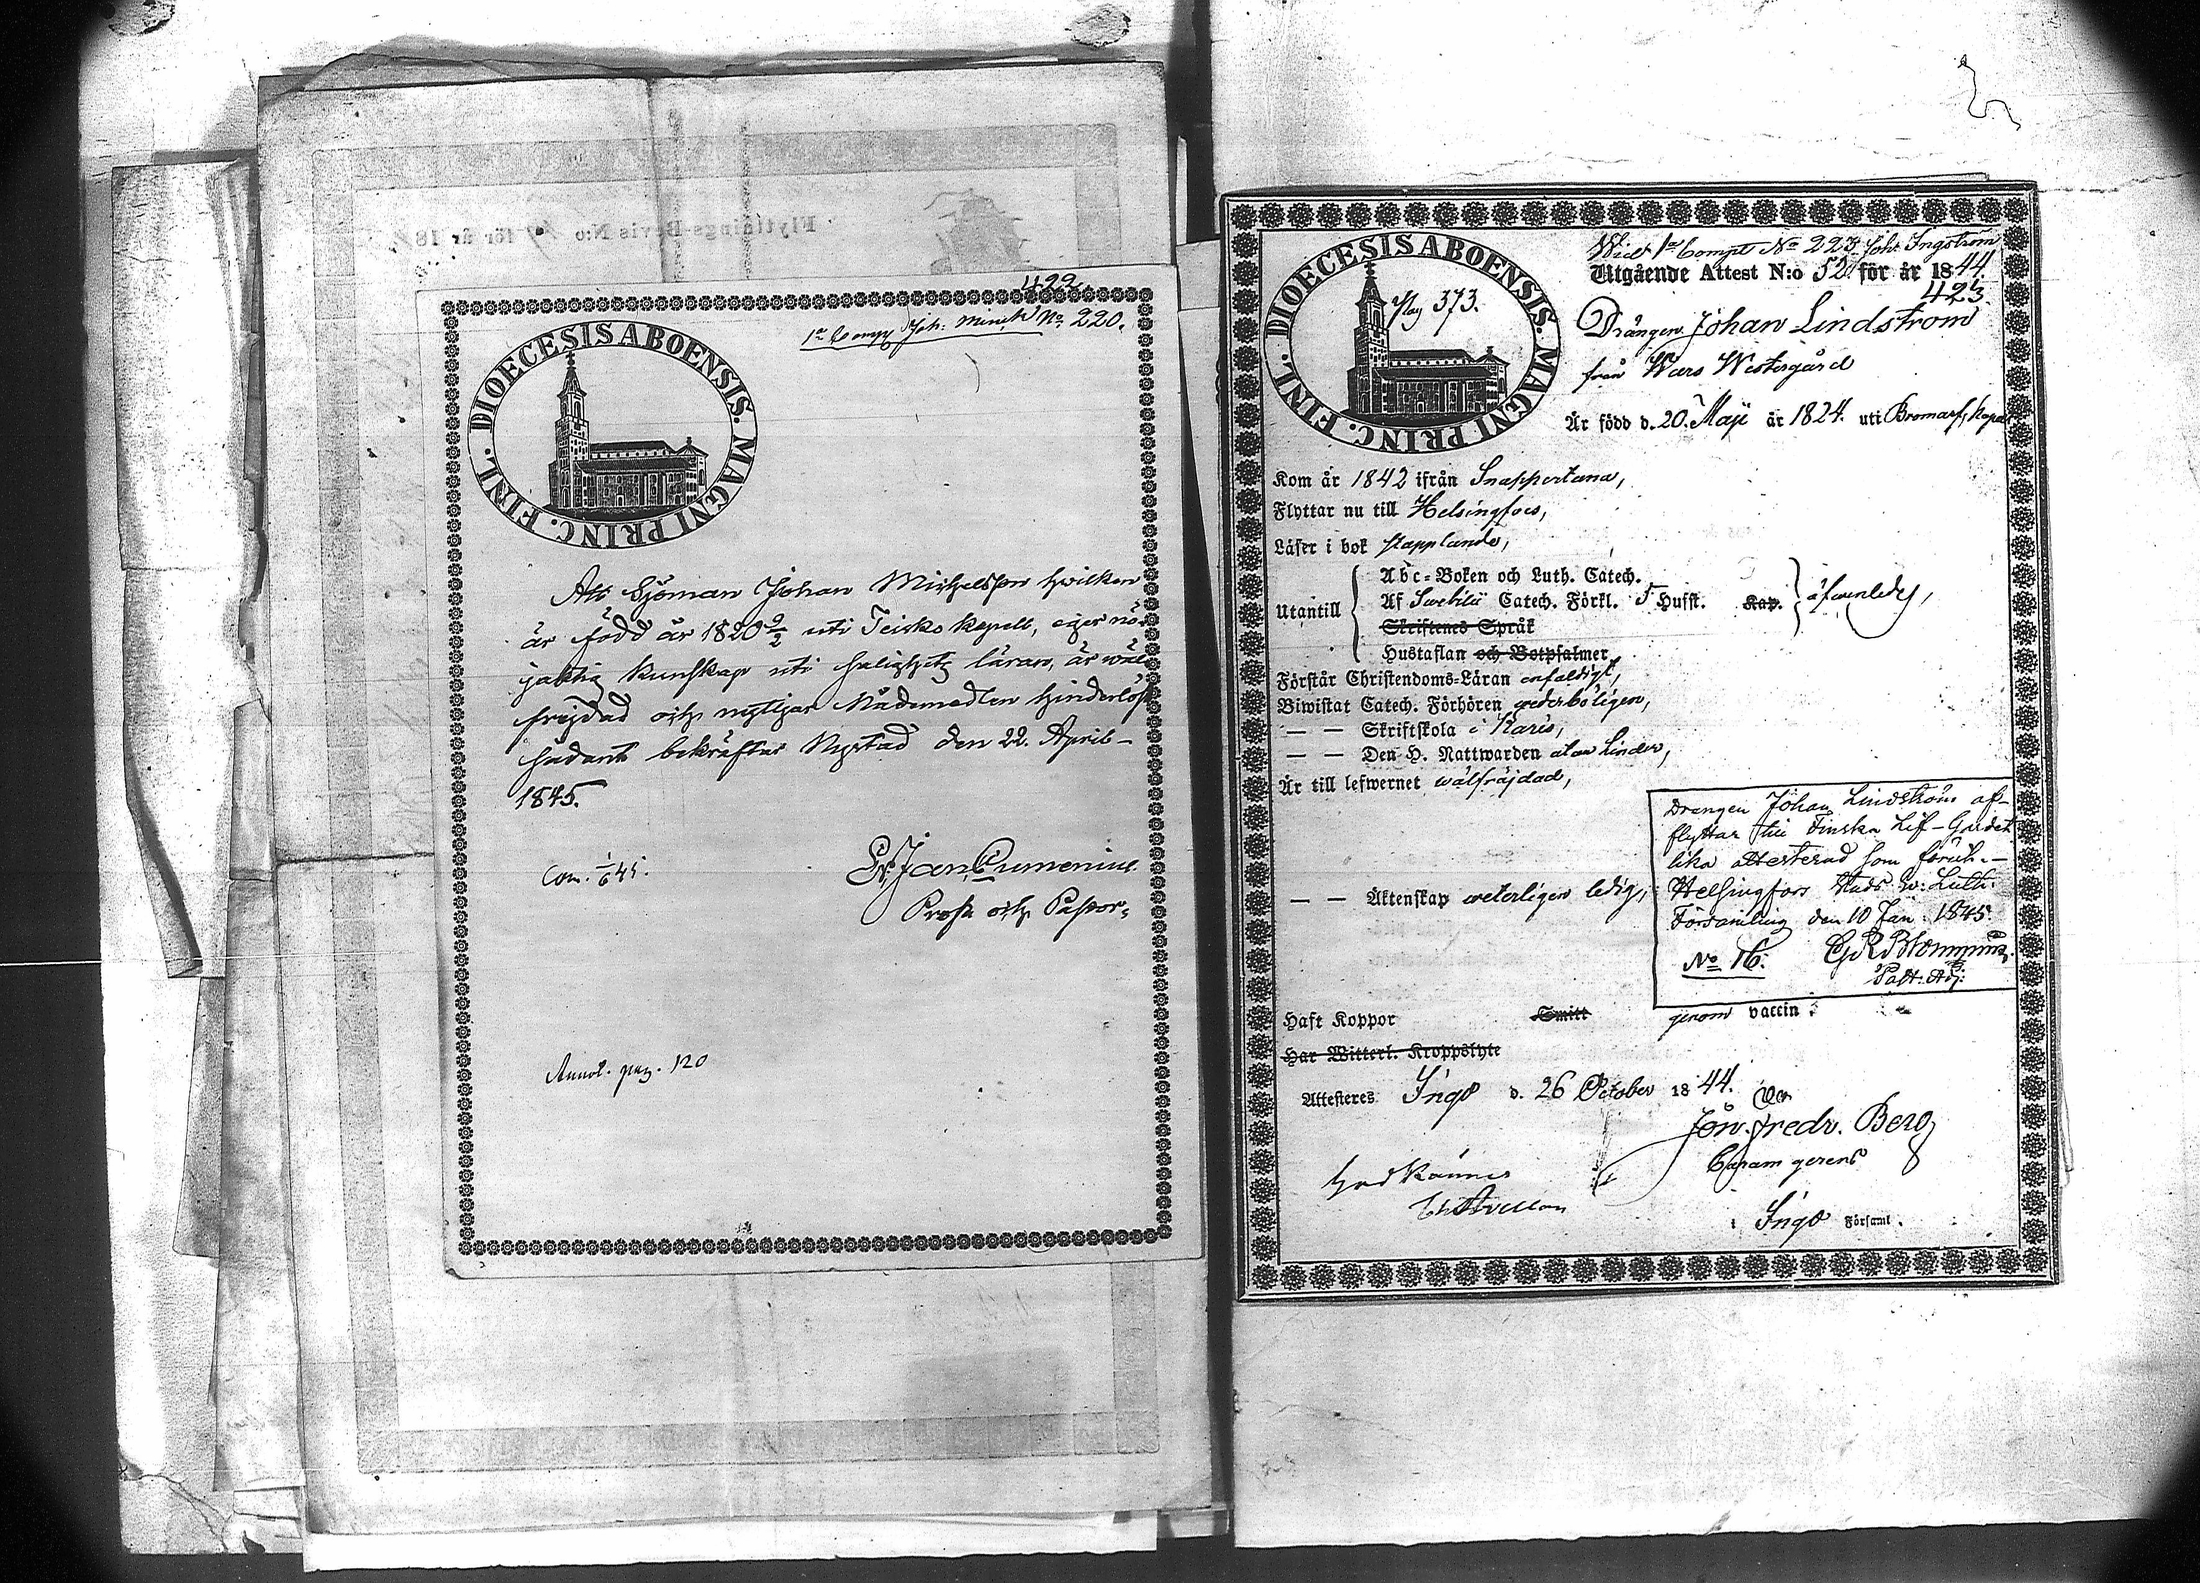 Flyttnings-Bevis N:o för år 18
422.
1e Comp Joh: Minck No 220.
DIOECESIS ABOENSIS. MAGNI PRINC. FINL.
Att Sjöman Johan Michelsson hvilken
är född år 1820 9/2 uti Teisko kapell, eger nö-
jaktig kunskap uti salighetz läran, är wäl
frejdad och nyttjar Nådemedlen hinderlöst
sådant bekräftar Nystad den 22. April
1845.
Com. 1/6 45.
Prost och Pastor
Annot. pag. 120
Wid 1e Compt No 223 Joh: Ingström
Utgående Attest N:o 52 för år 1844.
423.
DIOECESIS ABOENSIS. MAGNI PRINC. FINL.
Pag 373.
Drängen Johan Lindström
från Wars Westergård
Är född d. 20. Maji år 1824. uti Bromarf,
Kom år 1842 ifrån Snappertuna,
Flyttar nu till Helsingfors,
Läser i bok
Abc-Boken och Luth. Catech.
Utantill Af Swebilii Catech. Förkl. 5 Hufst. Kap. äfwenledes,
Skriftenes Språk
Hustaflan och Botpsalmer,
Förstår Christendoms-Läran enfaldigt,
Biwistat Catech. Förhören wederböligen,
— — Skriftskola i Karis,
— — Den H. Nattwarden utan hinder,
Är till lefwernet wälfräjdad,
— — Äktenskap weterligen ledig,
Drengen Johan Lindström af-
flyttar till Finska Lif-Gardet
lika attesterad som förut.—
Helsingfors Stads Ev: Luth:
Församling den 10 Jan: 1845.
No 16:
Past: Adj:
Haft Koppor Smitt genom vaccin.
Har Witterl. Kroppslyte
Attesteres Ingo d. 26 October 1844.
Jon. Fredr. Berg
Curam gerens
Godkännes
i Ingo Församl.